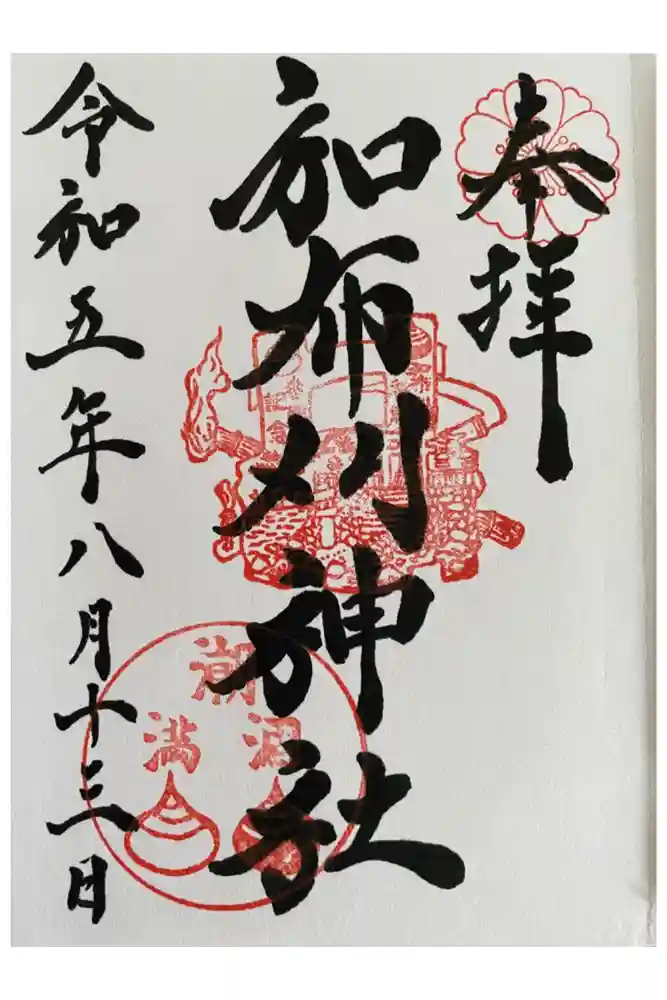 奉拝
加布刈神社
令和五年八月十三日
潮
涸
満